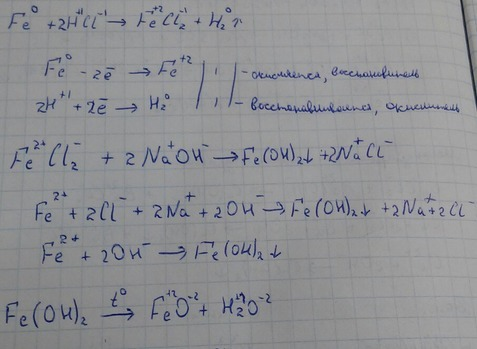 Fe⁰ + 2H⁺¹Cl⁻¹ → Fe⁺²Cl₂⁻¹ + H₂⁰↑
Fe⁰ - 2ē → Fe⁺² | 1 | - окисляется, восстановитель
2H⁺¹ + 2ē → H₂⁰ | 1 | - восстанавливается, окислитель
Fe²⁺Cl₂⁻ + 2Na⁺OH⁻ → Fe(OH)₂↓ + 2Na⁺Cl⁻
Fe²⁺ + 2Cl⁻ + 2Na⁺ + 2OH⁻ → Fe(OH)₂↓ + 2Na⁺ + 2Cl⁻
Fe²⁺ + 2OH⁻ → Fe(OH)₂↓
Fe(OH)₂ →t⁰ Fe⁺²O⁻² + H₂⁺¹O⁻²